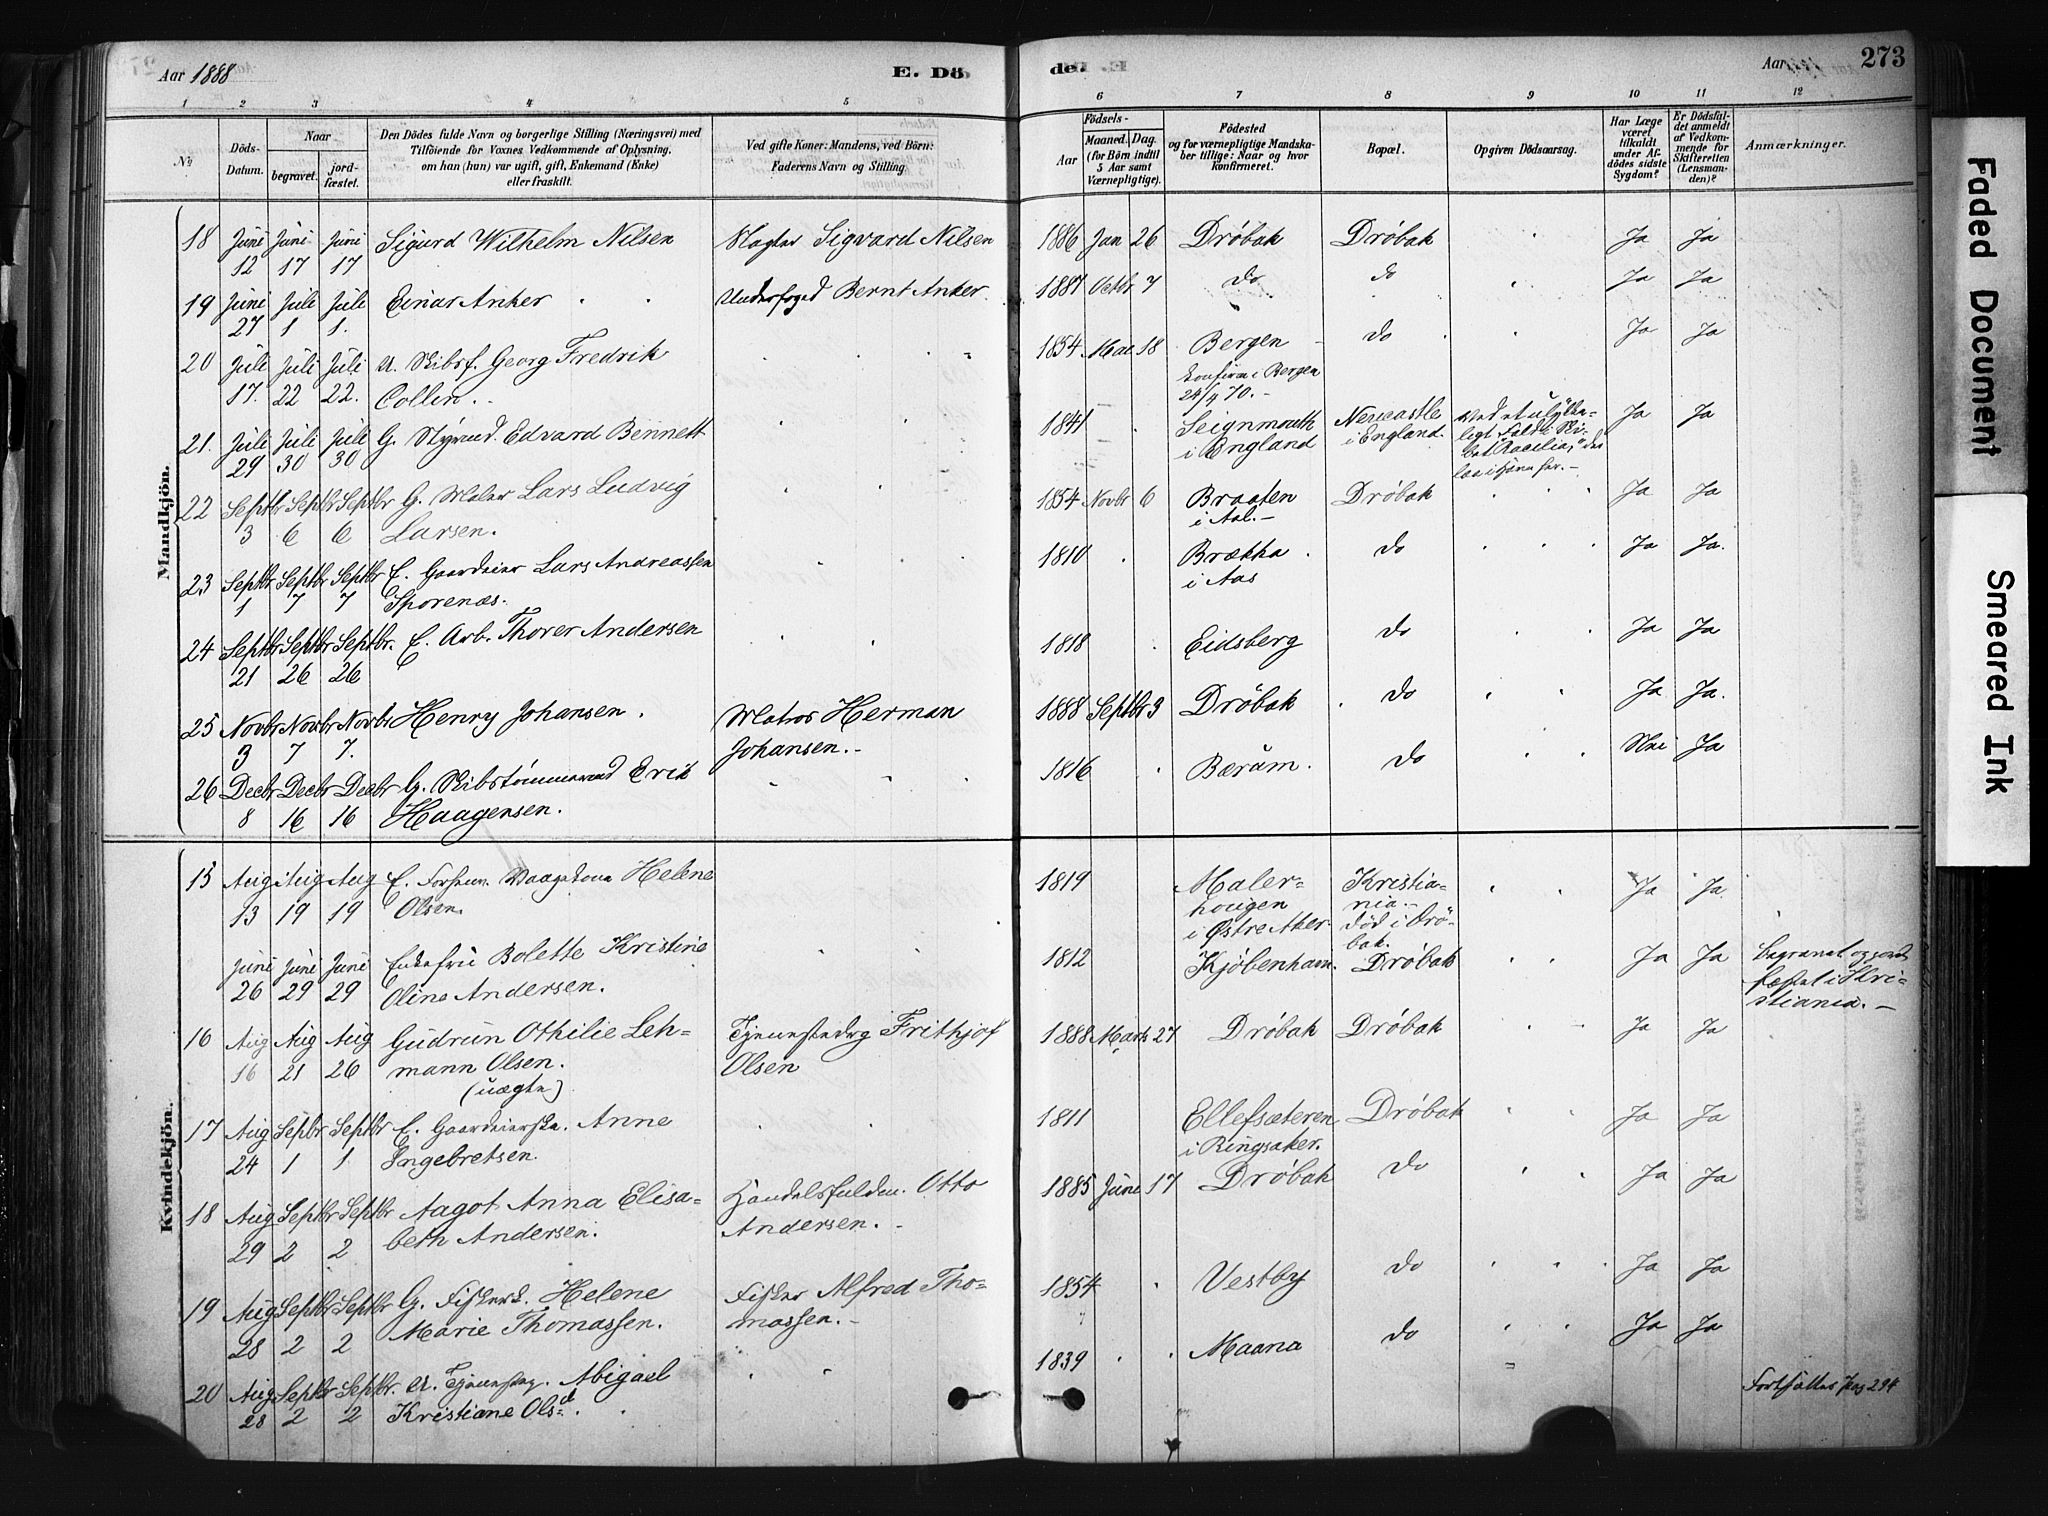 Aar 1888
E. Dö
de.
Aar
273
1 2 3 4 5 6 7 8 9 10 11 12
No
Döds-Datum.
Naar
begravet.
jord-fæstet.
Den Dödes fulde Navn og borgerlige Stilling (Næringsvei) med
Tilföiende for Voxnes Vedkommende af Oplysning,
om han (hun) var ugift, gift, Enkemand (Enke)
eller fraskilt.
Ved gifte Koner: Mandens, ved Börn:
Faderens Navn og Stilling.
Födsels-
Aar
Maaned. Dag.
(for Börn indtil
5 Aar samt
Værnepligtige).
Födested
og for værnepligtige Mandska-
ber tillige: Naar og hvor
konfirmeret.
Bopæl.
Opgiven Dödsaarsag.
Har Læge
været
tilkaldt
under Af-
dödes sidste
Sygdom?
Er Dödsfal-
det anmeldt
af Vedkom-
mende for
Skifteretten
(Lensman-
den)?
Anmærkninger.
Mandkjön.
18 Juni Juni Juni Sigurd Wilhelm Nilsen Sigvard Nilsen 1886 Jan 26 Dröbak Dröbak Ja Ja
12 17 17
19 Juni Juli Juli Einar Anker Underfoged Bernt Anker 1887 Octbr 7 do do Ja Ja
27 1 1.
20 Juli Juli Juli u. Skibsf. Georg Fredrik 1854 Mai 18 Bergen do Ja Ja
17. 22 22. Collin. konfirm i Bergen
24/4 70.
21. Juli Juli Juli G. Styrmd. Edvard Bennett 1841 Seignmouth Newcastle Ved et ulykke- Ja Ja
29 30 30 i England i England. ligt Fald
22 Septbr Septbr Septbr G. Maler Lars Ludvig 1854 Novbr 6 Braaten Dröbak Ja Ja
3 6 6 Larsen. i Aal.
23 Septbr Septbr Septbr E. Gaardeier Lars Andreassen 1810 Brækka do Ja Ja.
1 7 7 Sporenæs. i Aas
24 Septbr Septbr Septbr. E. Arb. Thorer Andersen 1818 Eidsberg do Ja Ja
21 26 26
25 Novbr Novbr Novbr Henry Johansen. Matros Herman 1888 Septbr 3 Dröbak do Ja Ja.
3 7 7. Johansen.
26 Decbr Decbr Decbr G. Skibstömmermd Erik 1816 Bærum. do Nei Ja
8 16 16 Haagensen.
Kvindekjön.
15 Aug Aug Aug E. Helene 1819 Maler- Kristia- Ja Ja
13 19 19 Olsen. hougen nia.
i Østre Aker död i Drö-
bak.
Juni Juni Juni Enkefru Bolette Kristine 1812 Kjøbenhavn. Dröbak Ja Ja begravet og jord-
26 29 29 Oline Andersen. fæstet i Kri-
stiania.
16 Aug Aug Aug Gudrun Othilie Leh- Tjenestedrg Frithjof 1888 Marts 27 Dröbak Dröbak Ja Ja
16 21 26 mann Olsen. Olsen
(uægte)
17 Aug Sepbr Septbr E. Gaardeierske. Anne 1811 Ellefsæteren Dröbak Ja Ja
24 1 1 Engebretsen. i Ringsaker.
18 Aug Septbr Septbr Aagot Anna Elisa- Handelsfuldm. Otto 1885 Juni 17 Dröbak do Ja Ja
29 2 2 beth Andersen. Andersen.
19 Aug Septbr Septbr G. Fiskersk. Helene Fisker Alfred Tho- 1854 Vestby do Ja Ja
28 2 2 Marie Thomassen. massen.
20 Aug Septbr Septbr. u. Tjenestep. Abigael 1839 Maana do Ja Ja
28 2 2 Kristiane Olsd.
Fortsættes pag 294
Faded Document
Smeared Ink